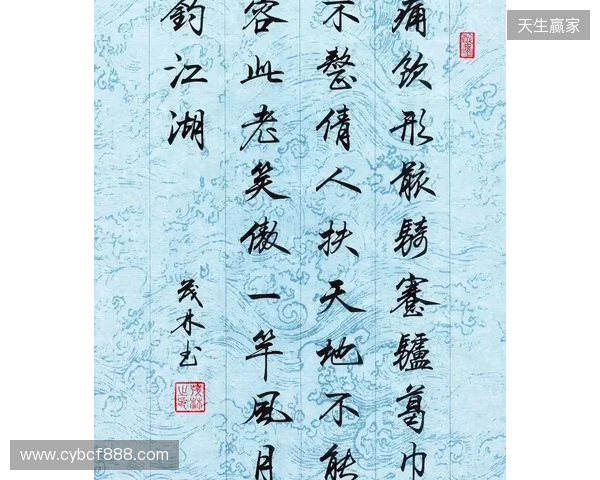 天生赢家
痛飲形骸騎蹇驢葛巾
不整倩人扶天地不能
容此老笑傲一竿風月
釣江湖
茂林书
www.cybcf888.com